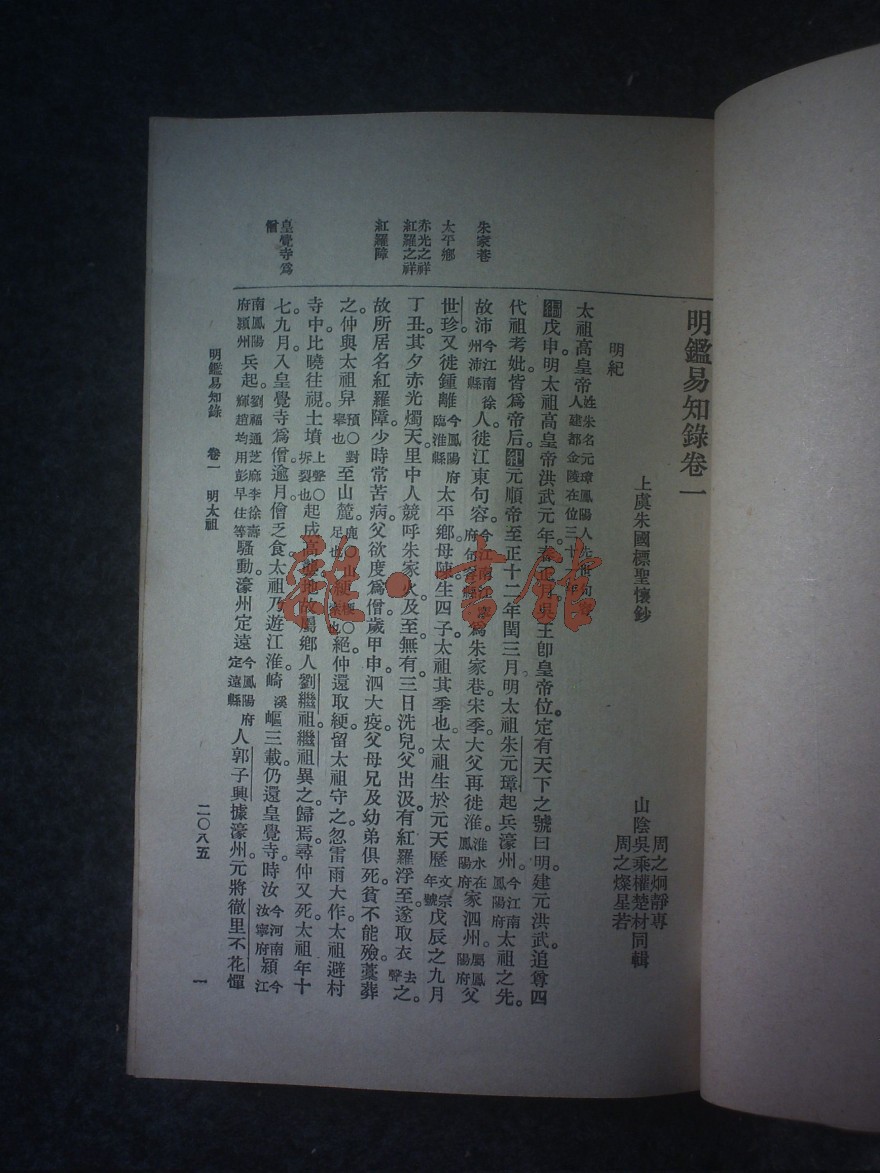 明鑑易知錄卷一
上虞朱國標聖懷鈔
周之炯靜專
山陰吳乘權楚材同輯
周之燦星若
明紀
太祖高皇帝姓朱名元璋鳳陽人先世句容人建都金陵在位三十一年
編戊申明太祖高皇帝洪武元年春正月吳王卽皇帝位定有天下之號曰明建元洪武追尊四
代祖考妣皆爲帝后。紀元順帝至正十二年閏三月明太祖朱元璋起兵濠州。今江南鳳陽府太祖之先。
朱家巷
故沛今江南徐州沛縣人徙江東句容。今江南江寧府句容縣爲朱家巷。宋季大父再徙淮。淮水在鳳陽府家泗州。屬鳳陽府父
太平鄉
世珍又徙鍾離今鳳陽府臨淮縣太平鄉。母陳。生四子。太祖其季也。太祖生於元天歷文宗年號戊辰之九月
赤光之祥
紅羅之祥
丁丑。其夕赤光燭天。里中人競呼朱家火。及至無有。三日洗兒。父出汲。有紅羅浮至。遂取衣去聲之。
紅羅障
故所居名紅羅障。少時常苦病。父欲度爲僧。歲甲申。泗大疫。父母兄及幼弟俱死。貧不能殮。藁葬
之。仲與太祖舁預○對舉也至山麓。鹿○山足也綆梗○索也絕。仲還取綆。留太祖守之。忽雷雨大作。太祖避村
寺中。比曉往視。土墳上聲○坼裂也起成高壟。地故屬鄉人劉繼祖。繼祖異之。歸焉。尋仲又死。太祖年十
皇覺寺爲僧
七。九月。入皇覺寺爲僧。逾月。僧乏食。太祖乃遊江淮。崎溪嶇三載。仍還皇覺寺。時汝今河南汝寧府潁今江
南鳳陽府潁州兵起。劉福通芝麻李徐壽輝趙均用彭早住等騷動。濠州定遠今鳳陽府定遠縣人郭子興據濠州。元將徹里不花憚
明鑑易知錄 卷一 明太祖
二〇八五
一
雜·書館